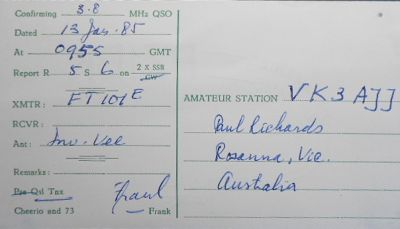 Confirming 3.8 MHz QSO
Dated 13 Jan. 85
At 0955 GMT
Report R 5 S 6 on 2 X SSB
CW
XMTR: FT101E
RCVR:
Ant: Inv. Vee
Remarks:
Pse Qsl Tnx
Cheerio and 73 Frank
AMATEUR STATION VK3AJJ
Paul Richards
Rosanna, Vic.
Australia